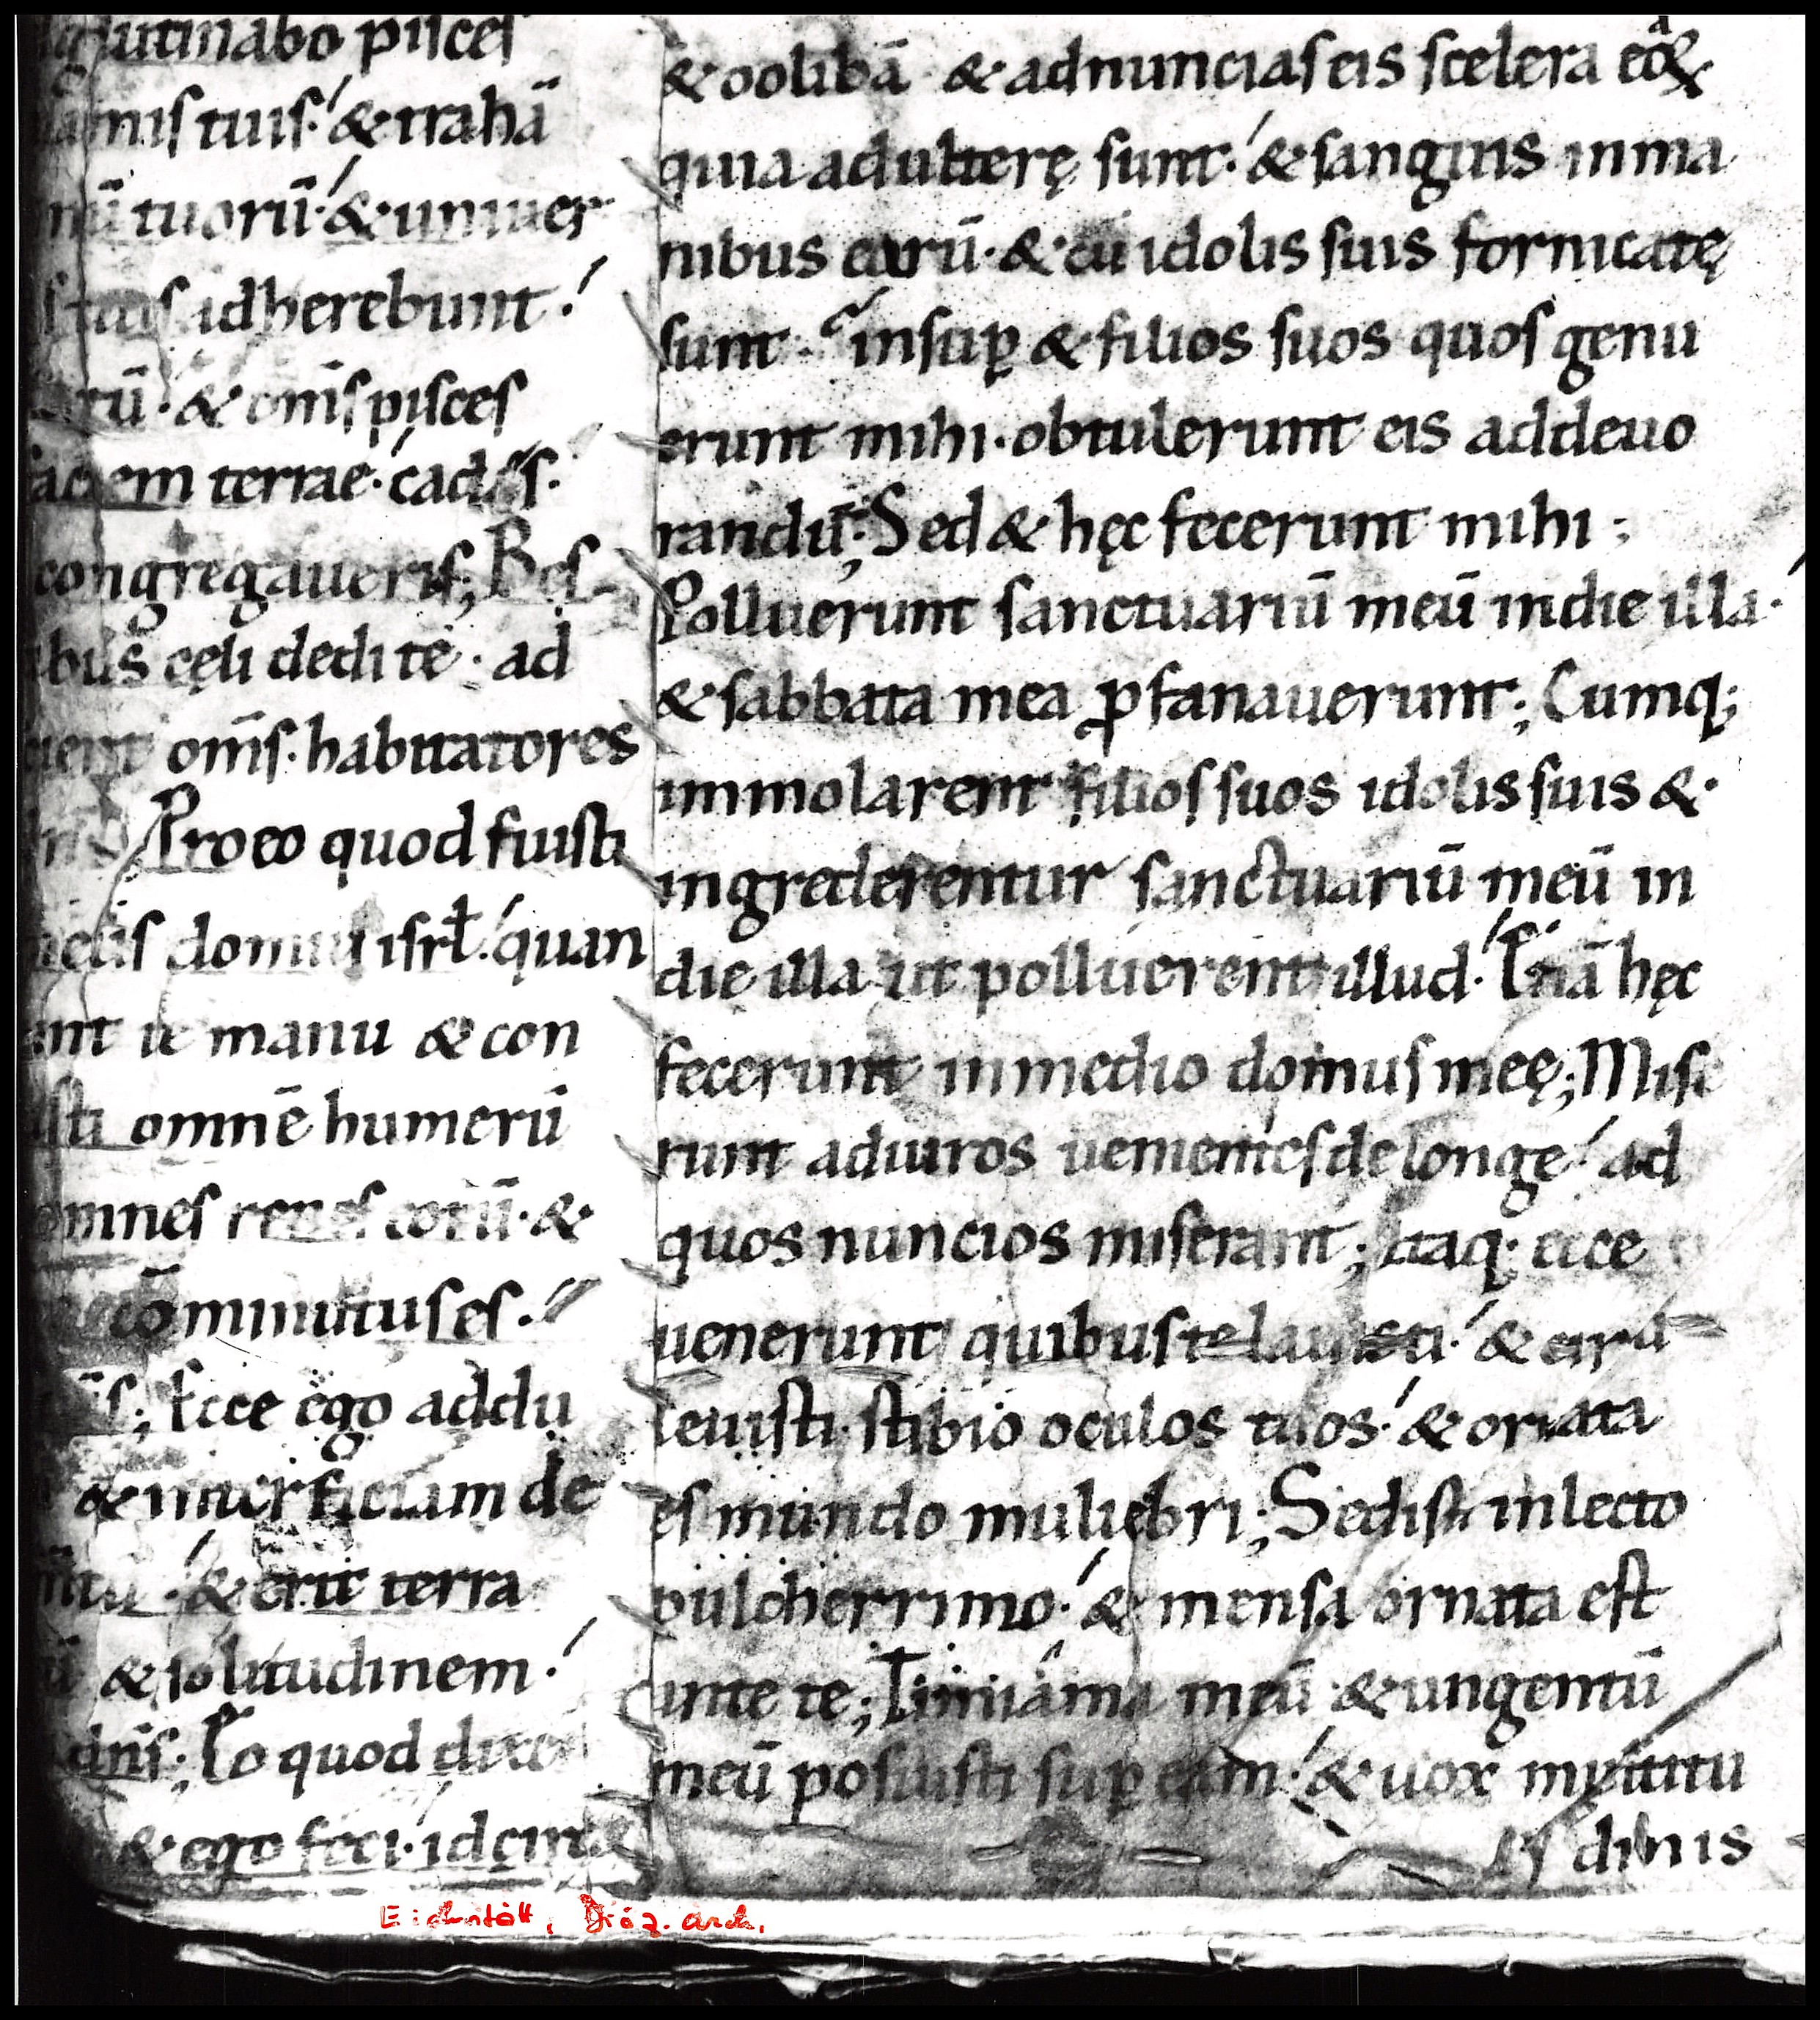 glutinabo pisces
mis tuis. & trahā
nū tuorū. & uniuer
s tuis adherebunt.
rū. & om̄s pisces
faciem terrae. cades.
congregaueris; Bes
ibus cęli dedi te. ad
cient om̄s. habitatores
Pro eo quod fuisti
neus domui isrł. quan
unt te manu & con
isti omnē humerū
omnes renes eorū. &
cōminutus es.
Ecce ego addu
& interficiam de
ntū. & erit terra
ū & solitudinem.
dn̄s; Eo quod dixe
& ego feci. idcirc
& oolibā & adnuncias eis scelera eaꝝ
quia adulterę sunt. & sanguis in ma
nibus earū. & cū idolis suis fornicatę
sunt. insuꝑ & filios suos quos genu
erunt mihi. obtulerunt eis ad deuo
randū; Sed & hęc fecerunt mihi;
Polluerunt sanctuariū meū in die illa.
& sabbata mea ꝓfanauerunt; Cumq;
immolarent filios suos idolis suis &
ingrederentur sanctuariū meū in
die illa ut polluerent illud. Etiā hęc
fecerunt in medio domus meę; Mise
runt ad uiros uenientes de longe. ad
quos nuncios miserant; Itaq. ecce
uenerunt quibus te lauisti. & circū
leuisti stibio oculos tuos. & ornata
es mundo muliebri; Sedisti in lecto
pulcherrimo. & mensa ornata est
ante te; Timiama meū & ungentū
meū posuisti suꝑ eam. & uox multitu
dinis
Eichstätt, Diöz. arch.